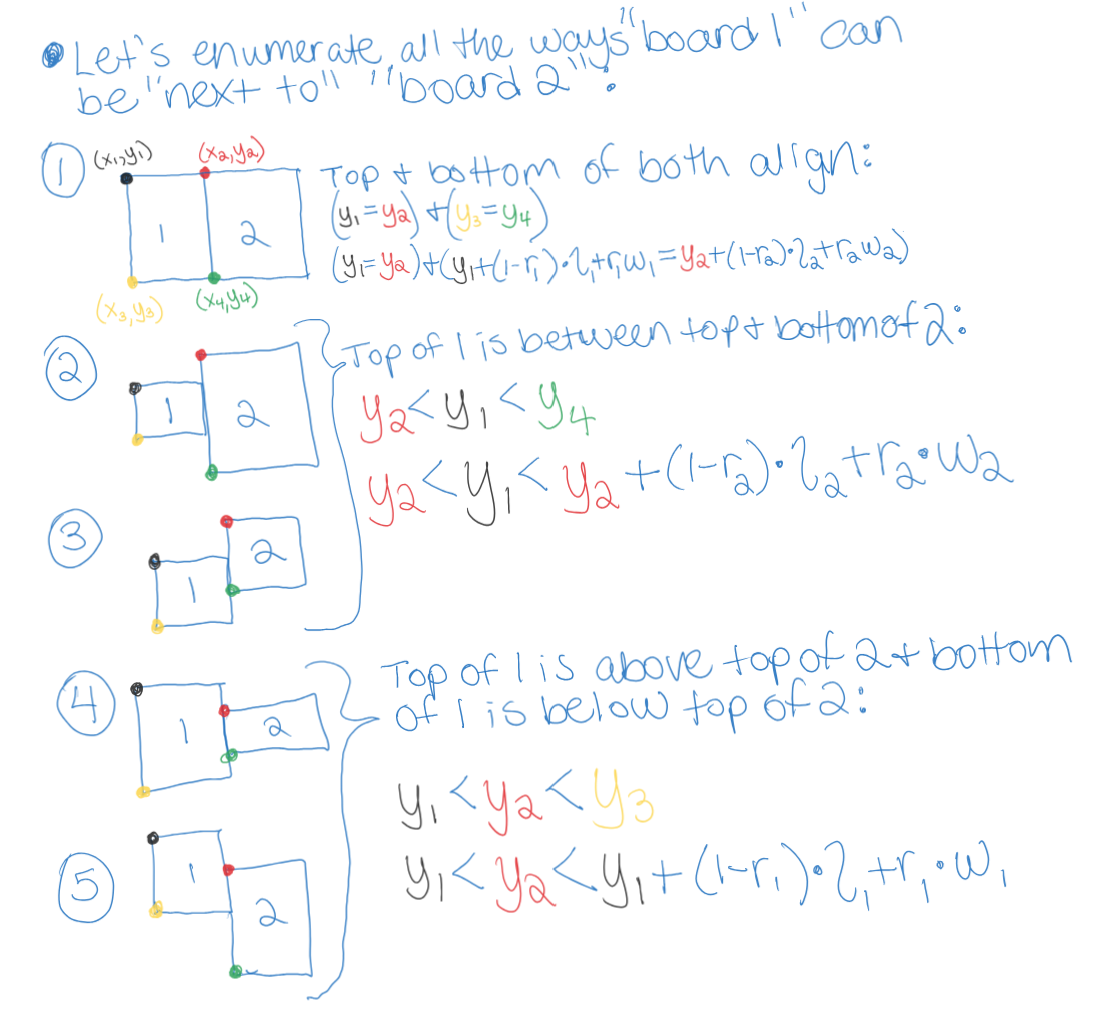 • Let's enumerate all the ways "board 1" can
be "next to" "board 2":
① (x₁,y₁) (x₂,y₂) Top + bottom of both align:
(y₁=y₂)+(y₃=y₄)
1 2
(y₁=y₂)+(y₁+(1-r₁)·l₁+r₁w₁=y₂+(1-r₂)·l₂+r₂w₂)
(x₃,y₃) (x₄,y₄)
② Top of 1 is between top + bottom of 2:
1 2
y₂<y₁<y₄
y₂<y₁<y₂+(1-r₂)·l₂+r₂·w₂
③ 1 2
④ Top of 1 is above top of 2 + bottom
of 1 is below top of 2:
1 2
y₁<y₂<y₃
⑤ 1 2
y₁<y₂<y₁+(1-r₁)·l₁+r₁·w₁